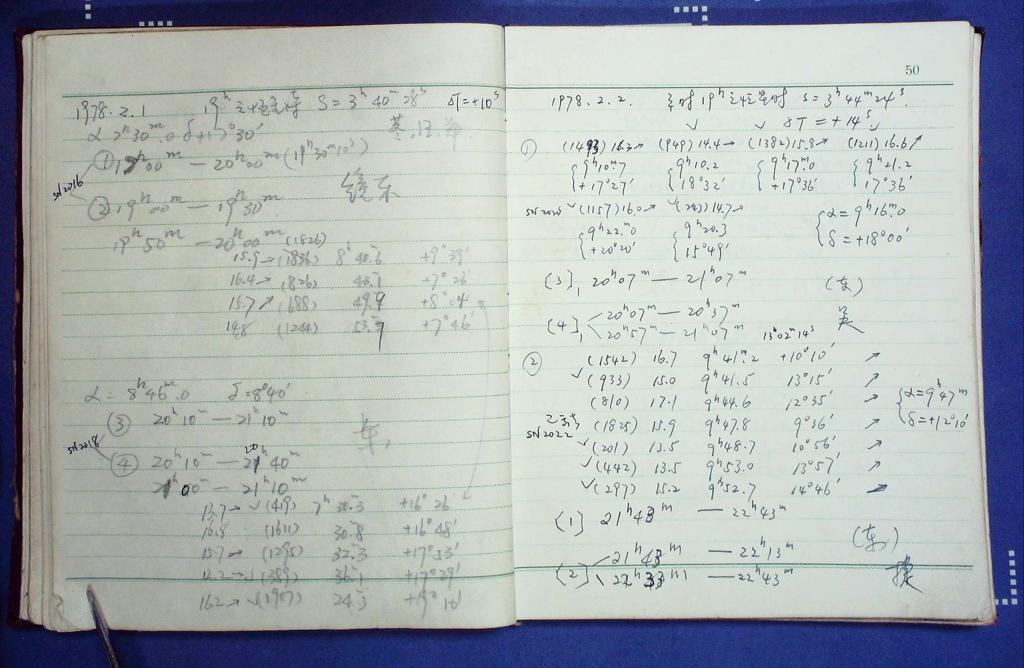 1978.2.1 19ʰ S = 3ʰ 40ᵐ 28ˢ δT = +10ˢ
α 7ʰ30ᵐ.0 δ +17°30′
① 19ʰ00ᵐ — 20ʰ00ᵐ (19ʰ30ᵐ10ˢ)
SN2016
② 19ʰ00ᵐ — 19ʰ30ᵐ
19ʰ50ᵐ — 20ʰ00ᵐ (1826)
15.9→ (1836) 8ʰ 40.6 +9° 39′
16.4→ (826) 43.1 +7° 26′
15.7↗ (1688) 49.9 +8° 04′
14.8 (1244) 53.7 +7° 46′
α = 8ʰ46ᵐ.0 δ = 8°40′
③ 20ʰ10ᵐ — 21ʰ10ᵐ
SN2018
④ 20ʰ10ᵐ — 20ʰ40ᵐ
21ʰ00ᵐ — 21ʰ10ᵐ
13.7→ ✓(419) 7ʰ 30.3 +16° 26′
16.8 (1611) 30.8 +16° 48′
15.7→ (1295) 32.3 +17° 33′
12.2→ ✓(389) 36.1 +17° 29′
16.2→ ✓(1907) 24.3 +19° 16′
50
1978.2.2. 19ʰ S = 3ʰ44ᵐ24ˢ.
✓ ✓ δT = +14ˢ ✓
① (1493) 16.3→ (949) 14.4→ (1382) 15.8→ (1211) 16.6↗
9ʰ10ᵐ.7 9ʰ10.2 9ʰ17ᵐ.0 9ʰ21.2
+17°27′ 18°32′ +17°36′ 17°36′
SN2020 ✓(1157) 16.0→ ✓(243) 14.7→ α = 9ʰ16ᵐ.0
9ʰ22ᵐ.0 9ʰ20.3 δ = +18°00′
+20°20′ 15°49′
[3], 20ʰ07ᵐ — 21ʰ07ᵐ
20ʰ07ᵐ — 20ʰ37ᵐ
[4], 20ʰ57ᵐ — 21ʰ07ᵐ 13ʰ02ᵐ14ˢ
② (1542) 16.7 9ʰ41ᵐ.2 +10°10′ ↗
✓(933) 15.0 9ʰ41.5 13°15′ ↗
(810) 17.1 9ʰ44.6 12°35′ ↗ α = 9ʰ47ᵐ
SN2022 (1825) 15.9 9ʰ47.8 9°36′ ↗ δ = +12°10′
✓(201) 13.5 9ʰ48.7 10°56′ ↗
✓(442) 13.5 9ʰ53.0 13°57′ ↗
✓(297) 15.2 9ʰ52.7 14°46′ →
[1] 21ʰ43ᵐ — 22ʰ43ᵐ
21ʰ43ᵐ — 22ʰ13ᵐ
[2] 22ʰ33ᵐ — 22ʰ43ᵐ